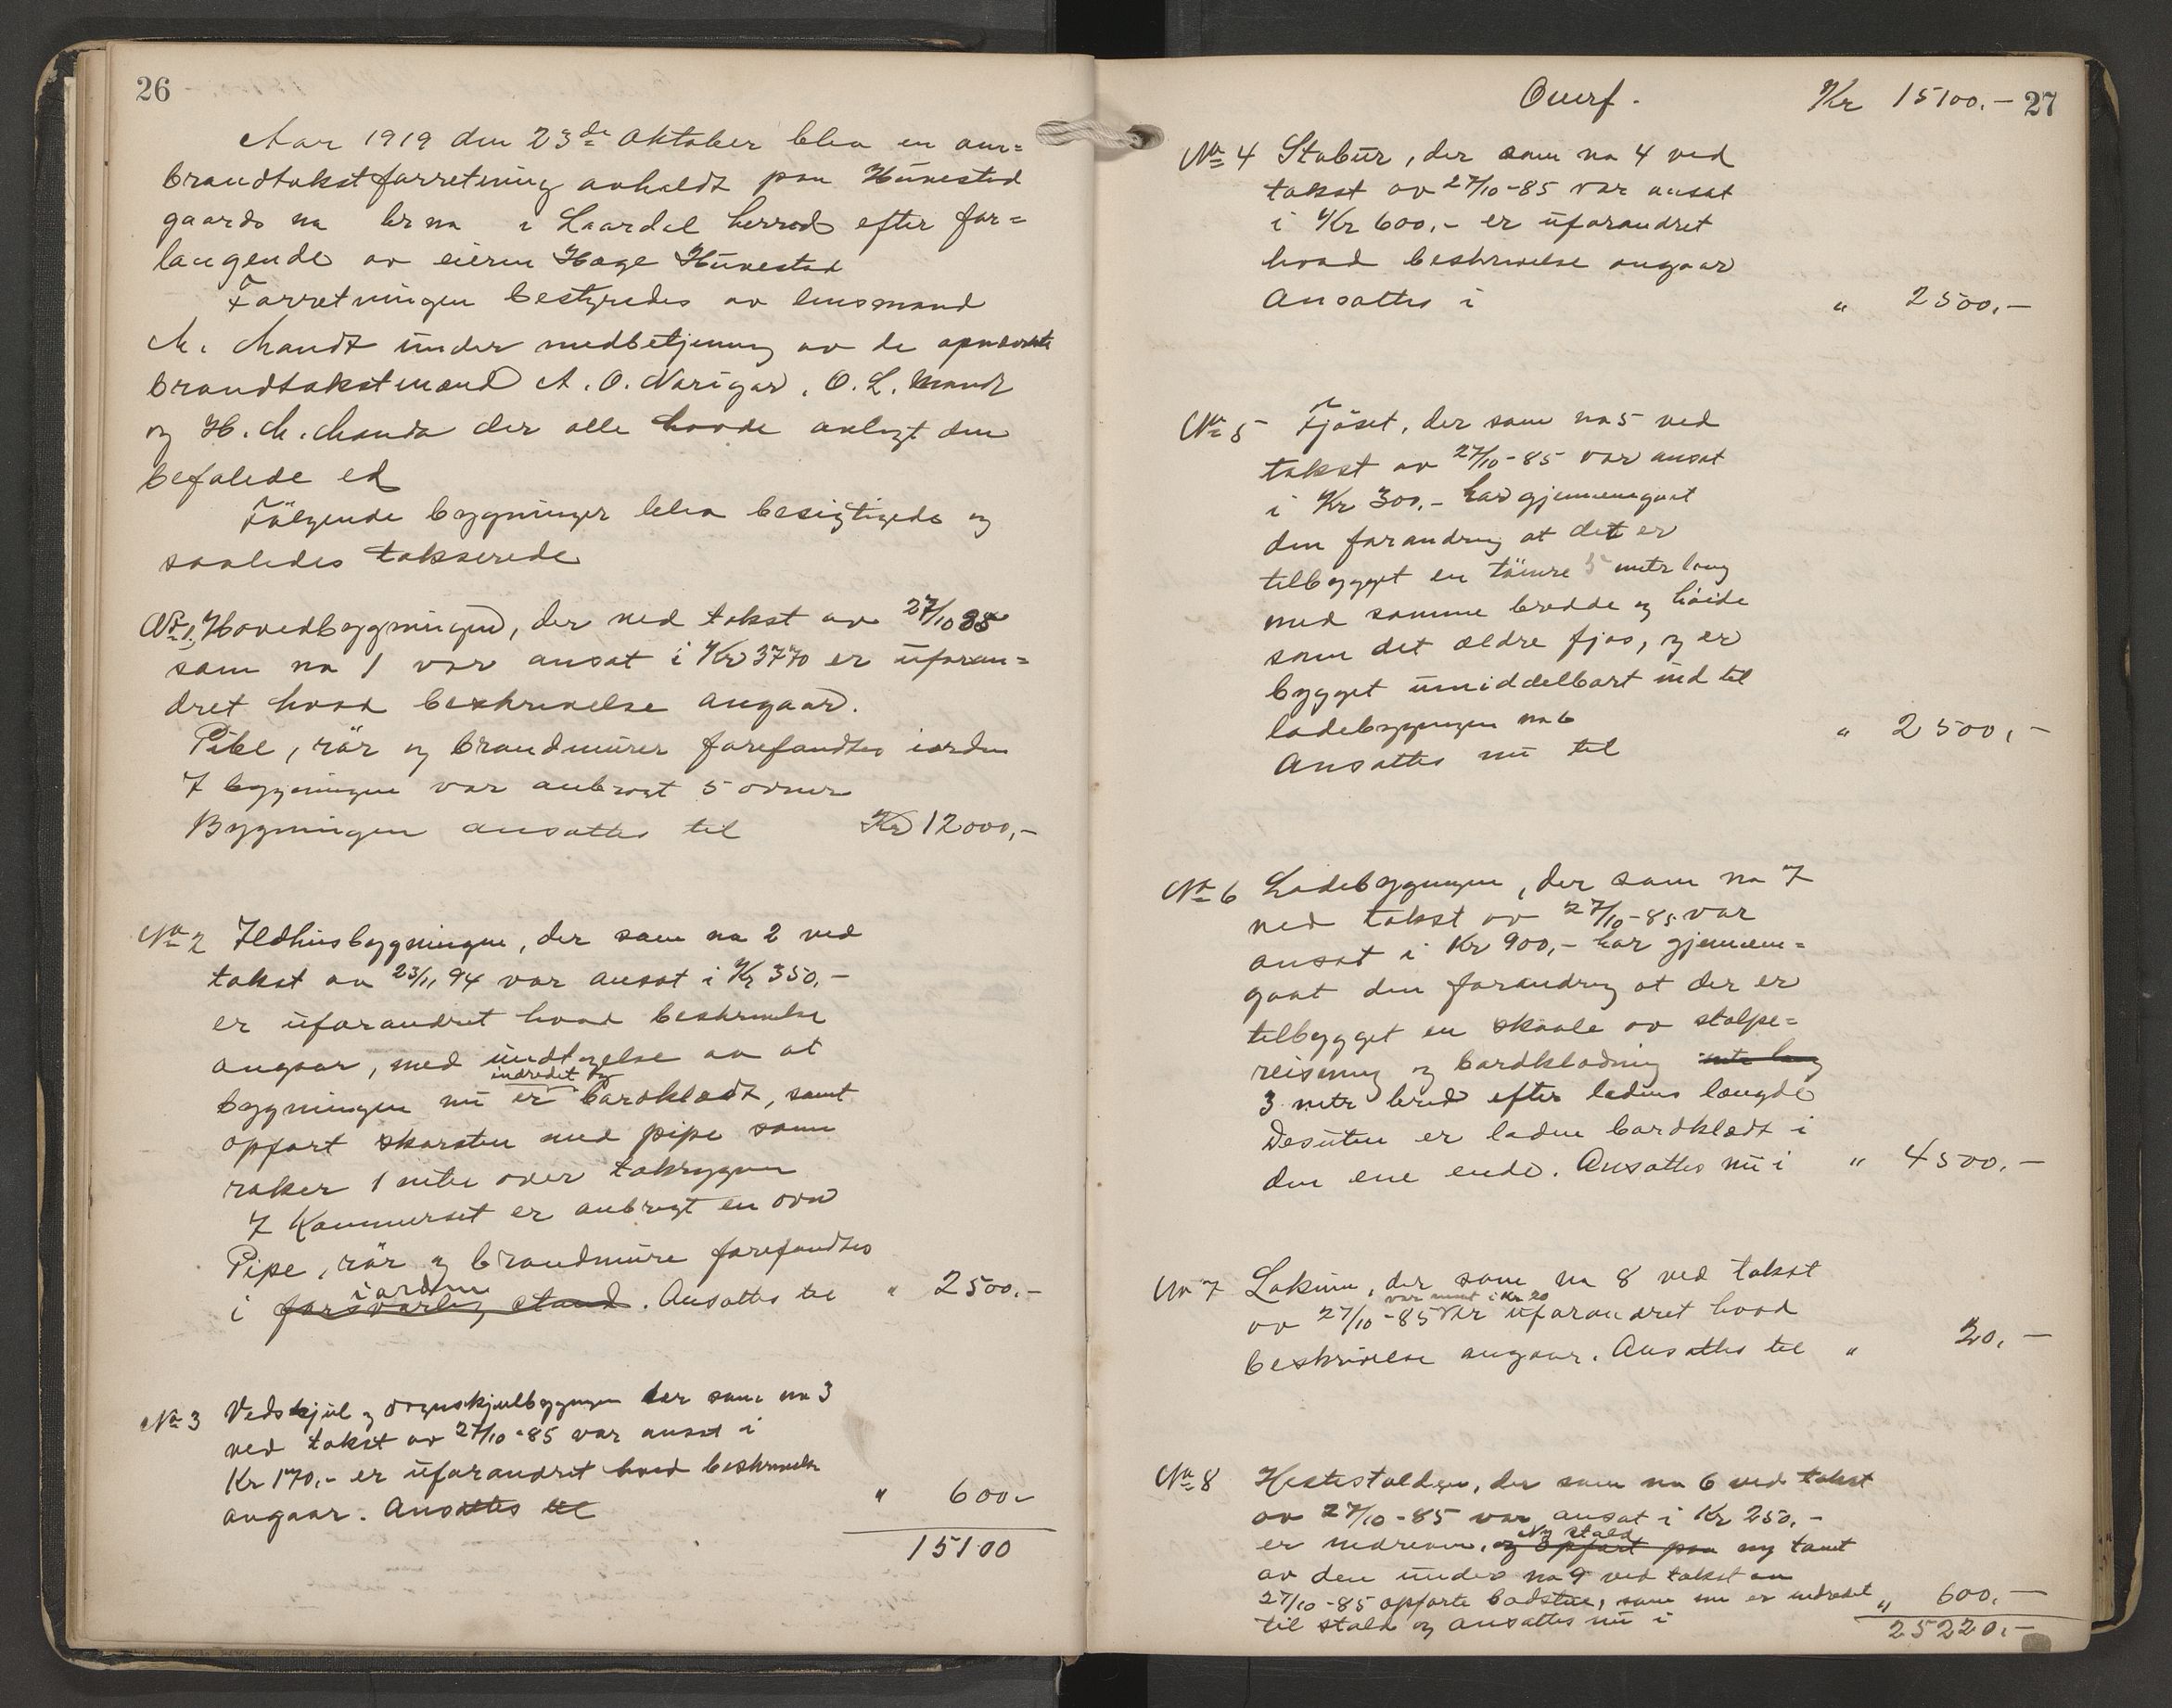 26
Aar 1919 den 23de Oktober blev en om=
brandtakstforretning avholdt paa Hünestad
gaards no brno i Laardal herred efter for=
langende av eieren Hæge Hünestad
Forretningen bestyredes av lensmand
A. Mandt ünder medbetjening av de opnævnte
brandtakstmænd A. O. Narigar, O. L. Mandt
og H. A. Manda der alle havde avlagt den
befalede ed
Fölgende bygninger blev besigtigede og
saaledes takserede
No 1, Hovedbygningen, der ved takst av 27/10 85
som no 1 var ansat i Kr 3770 er üforan=
dret hvad beskrivelse angaar.
Pibe, rör og brandmürer forefandtes iorden
I bygningen var anbragt 5 ovner
Bygningen ansattes til Kr 12000,-
No 2 Ildhüsbygningen, der som no 2 ved
takst av 23/11 94 var ansat i Kr 350,-
er üforandret hvad beskrivelse
angaar, med ündtagelse av at
indredet og
bygningen nü er bordklædt, samt
opført skorsten med pipe som
raker 1 meter over takryggen
I Kammerset er anbragt en ovn
Pipe, rör og brandmüre forefandtes
iorden
i forsvarlig stand. Ansattes til " 2500,-
No 3 Vedskjül og vognskjulbygningen der som no 3
ved takst av 27/10-85 var ansat i
Kr 170,- er üforandret hvad beskrivelse
angaar. Ansattes til " 600,-
15100
Overf. Kr 15100,- 27
No 4 Stabür, der som no 4 ved
takst av 27/10-85 var ansat
i Kr 600,- er üforandret
hvad beskrivelse angaar
Ansattes i " 2500,-
No 5 Fjöset, der som no 5 ved
takst av 27/10-85 var ansat
i Kr 300,- har gjennemgaat
den forandring at det er
tilbygget en tömre 5 metr lang
med samme bredde og höide
som det ældre fjøs, og er
bygget ümiddelbart ind til
ladebygningen no 6 " 2500,-
Ansattes nü til
No 6 Ladebygningen, der som no 7
ved takst av 27/10-85 var
ansat i Kr 900,- har gjennem=
gaat den forandring at der er
tilbygget en skaale av stolpe=
reisning og bordklædning metr lang
3 metr bred efter ladens længde
Desüten er laden bordklædt i
den ene ende. Ansattes nü i " 4500,-
No 7 Loküm, der som no 8 ved takst
var ansat i Kr 20
av 27/10-85 er üforandret hvad
beskrivelse angaar. Ansattes til " 20,-
No 8 Hestestalden, der som no 6 ved takst
av 27/10-85 var ansat i Kr 250,-
Ny stald
er nedreven, og opført paa ny tomt
av den ünder no 9 ved takst av
27/10-85 opførte badstüe, som nu er indredet " 600,-
til stald og ansattes nü i
25220,-